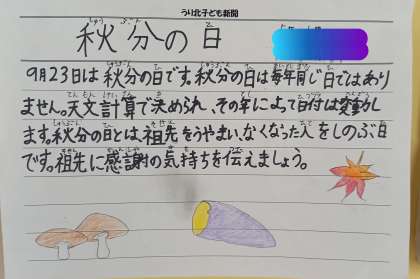 うり北子ども新聞
秋分の日
9月23日は秋分の日です。秋分の日は毎年同じ日ではあり
ません。天文計算で決められ、その年によって日付は変動し
ます。秋分の日とは、祖先をうやまい、なくなった人をしのぶ日
です。祖先に感謝の気持ちを伝えましょう。